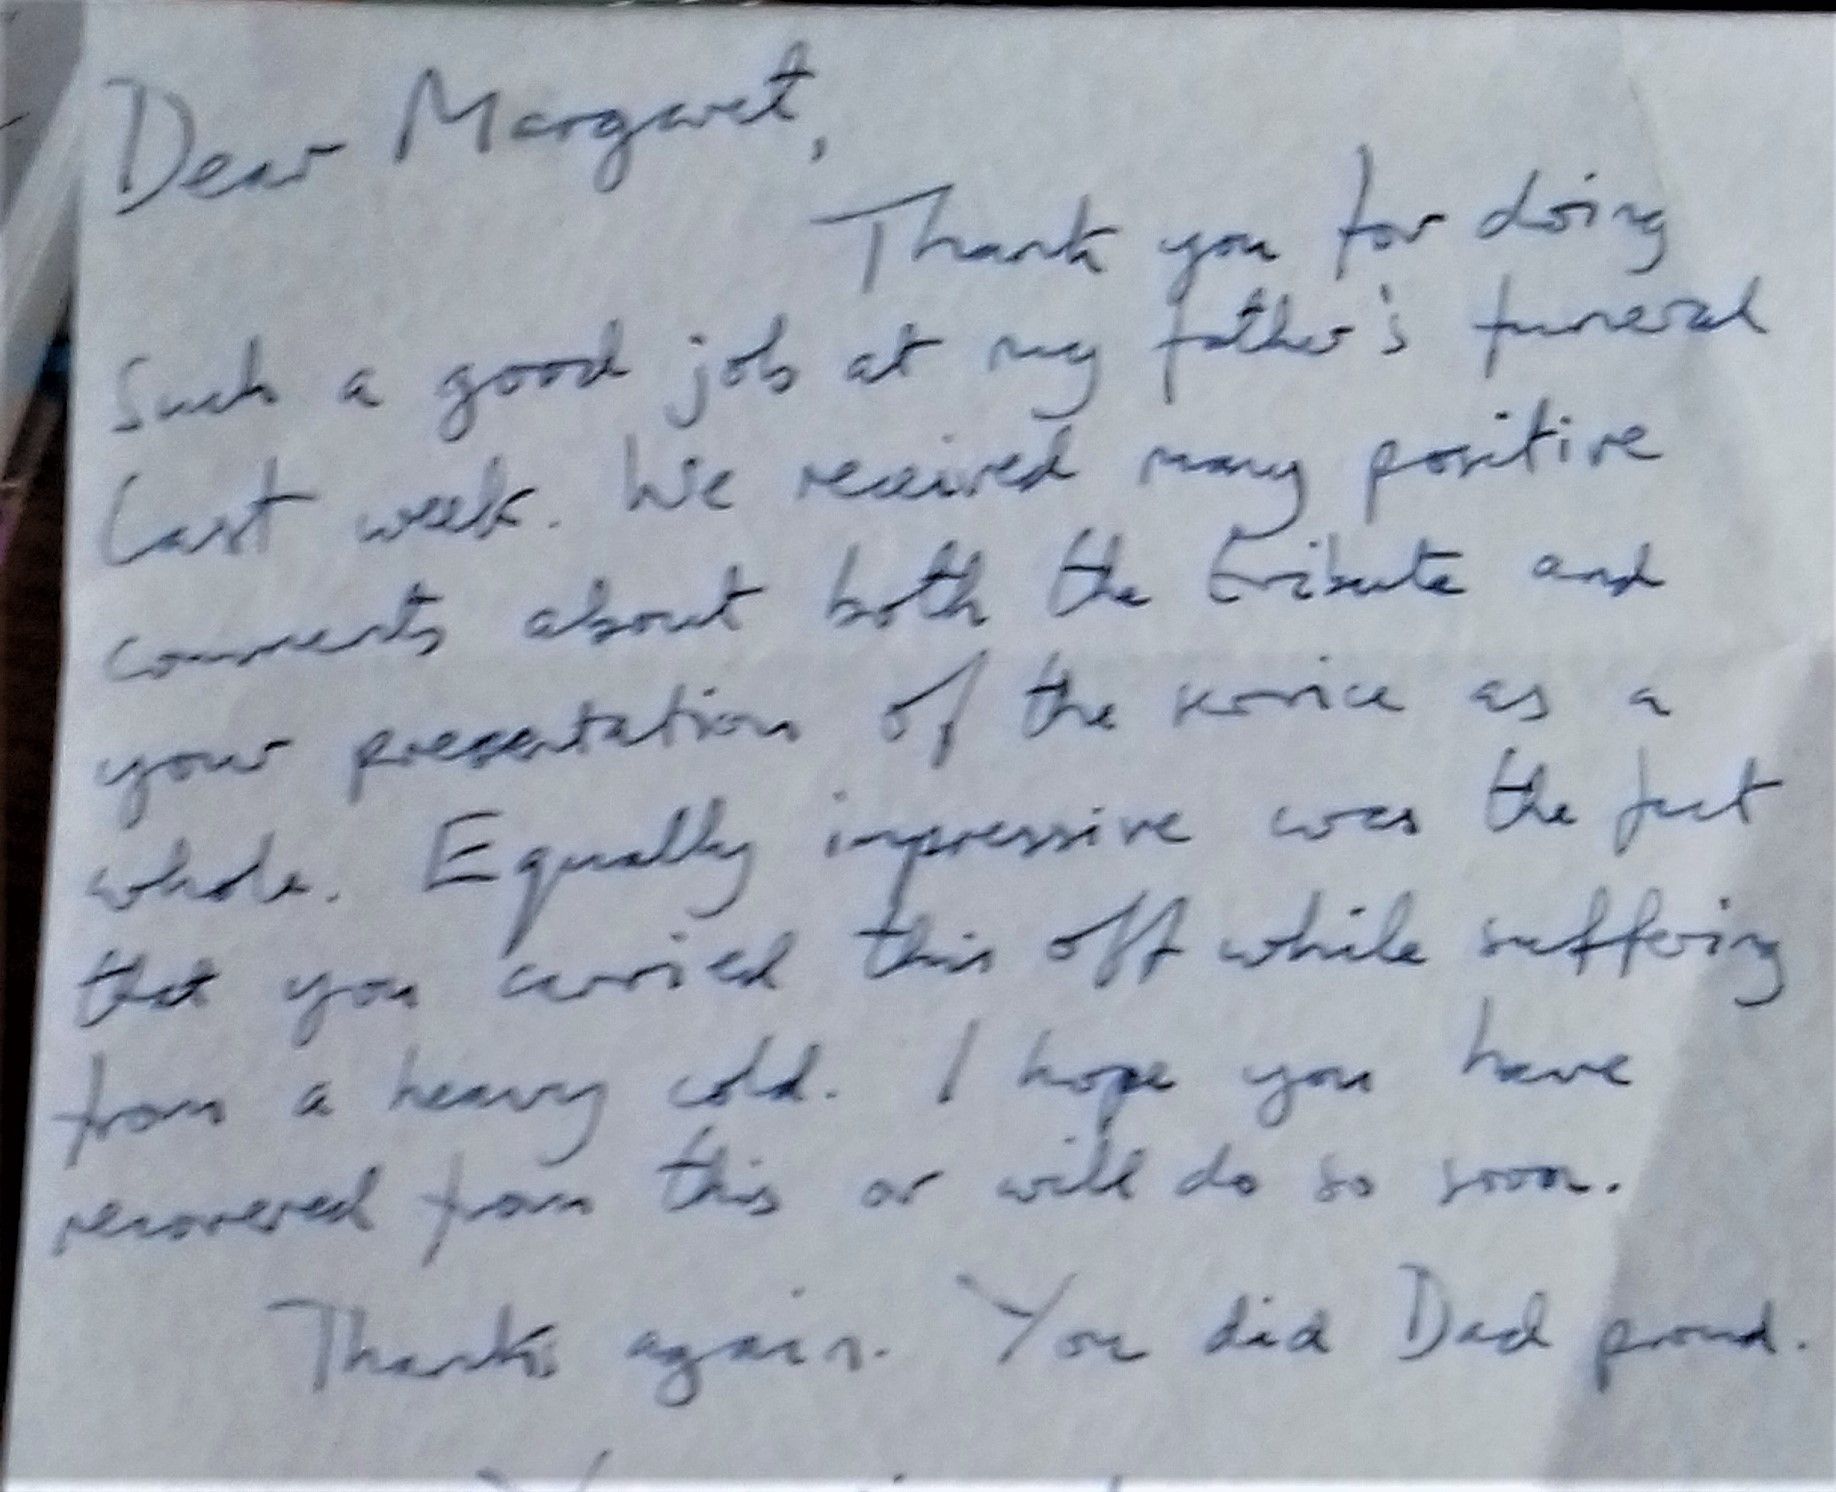 Dear Margaret,
Thank you for doing
such a good job at my father's funeral
last week. We received many positive
comments about both the tribute and
your presentation of the service as a
whole. Equally impressive was the fact
that you carried this off while suffering
from a heavy cold. I hope you have
recovered from this or will do so soon.
Thanks again. You did Dad proud.